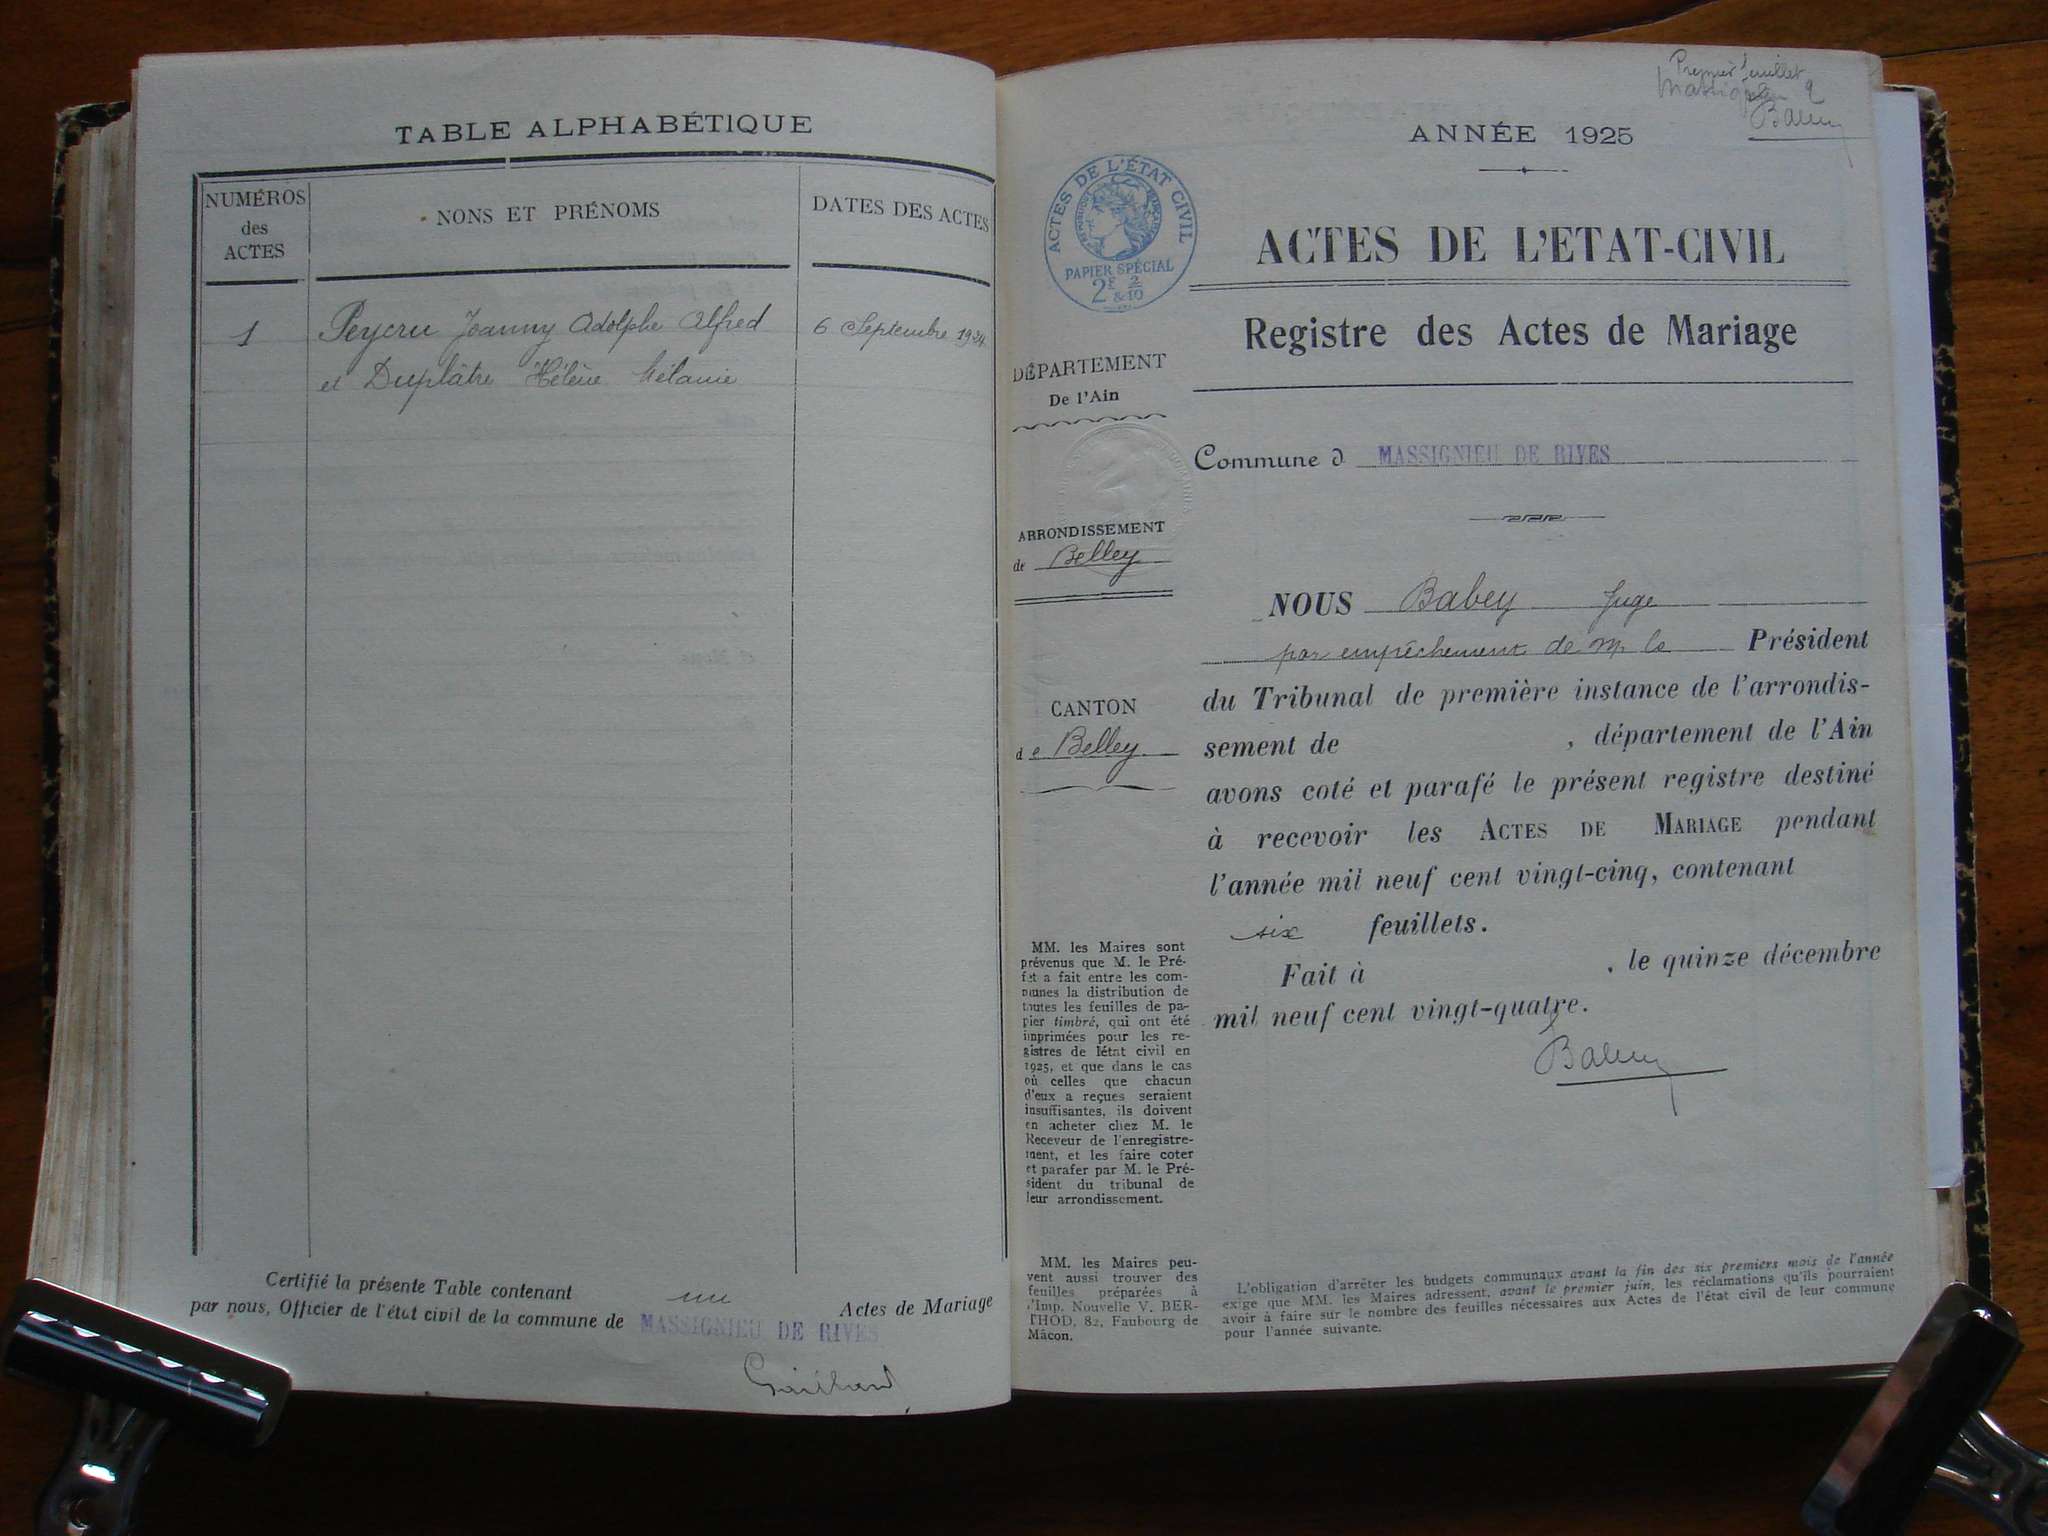 TABLE ALPHABÉTIQUE
NUMÉROS
des
ACTES
NONS ET PRÉNOMS
DATES DES ACTES
1
Peycru Joanny Adolphe Alfred
6 Septembre 1924
et Duplâtre Hélène Mélanie
Certifié la présente Table contenant un Actes de Mariage
par nous, Officier de l'état civil de la commune de MASSIGNIEU DE RIVES
Premier feuillet
Babey
ANNÉE 1925
ACTES DE L'ÉTAT CIVIL
RÉPUBLIQUE FRANÇAISE
PAPIER SPÉCIAL
2F 2/10
&
ACTES DE L'ETAT-CIVIL
Registre des Actes de Mariage
DÉPARTEMENT
De l'Ain
Commune d MASSIGNIEU DE RIVES
ARRONDISSEMENT
de Belley
CANTON
de Belley
NOUS Babey Juge
par empêchement de M le Président
du Tribunal de première instance de l'arrondis-
sement de , département de l'Ain
avons coté et parafé le présent registre destiné
à recevoir les ACTES DE MARIAGE pendant
l'année mil neuf cent vingt-cinq, contenant
six feuillets.
Fait à , le quinze décembre
mil neuf cent vingt-quatre.
Babey
MM. les Maires sont
prévenus que M. le Pré-
fet a fait entre les com-
munes la distribution de
toutes les feuilles de pa-
pier timbré, qui ont été
imprimées pour les re-
gistres de l'état civil en
1925, et que dans le cas
où celles que chacun
d'eux a reçues seraient
insuffisantes, ils doivent
en acheter chez M. le
Receveur de l'enregistre-
ment, et les faire coter
et parafer par M. le Pré-
sident du tribunal de
leur arrondissement.
MM. les Maires peu-
vent aussi trouver des
feuilles préparées à
l'Imp. Nouvelle V. BER-
THOD, 82, Faubourg de
Mâcon.
L'obligation d'arrêter les budgets communaux avant la fin des six premiers mois de l'année
exige que MM. les Maires adressent, avant le premier juin, les réclamations qu'ils pourraient
avoir à faire sur le nombre des feuilles nécessaires aux Actes de l'état civil de leur commune
pour l'année suivante.